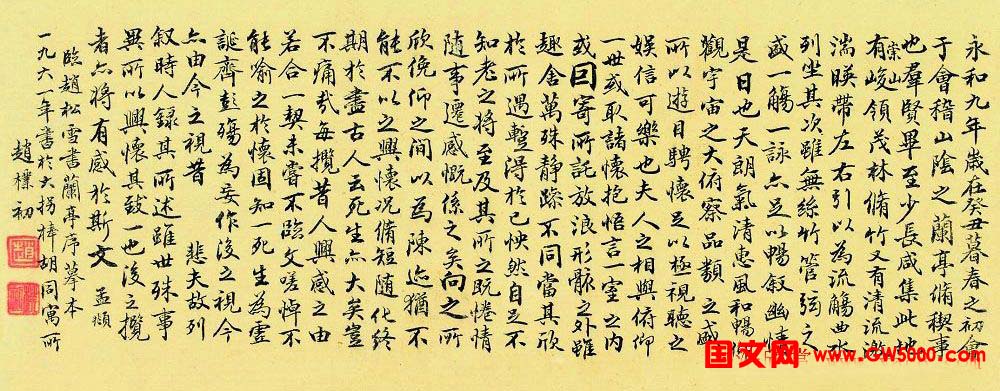 永和九年歲在癸丑暮春之初會
于會稽山陰之蘭亭脩禊事
也羣賢畢至少長咸集此地
有崇山峻領茂林脩竹又有清流激
湍暎帶左右引以為流觴曲水
列坐其次雖無絲竹管弦之
盛一觴一詠亦足以暢叙幽情
是日也天朗氣清惠風和暢仰
觀宇宙之大俯察品類之盛
所以遊目騁懷足以極視聽之
娛信可樂也夫人之相與俯仰
一世或取諸懷抱悟言一室之内
或因寄所託放浪形骸之外雖
趣舍萬殊静躁不同當其欣
於所遇蹔得於己怏然自足不
知老之將至及其所之既惓情
隨事遷感慨係之矣向之所
欣俛仰之間以為陳迹猶不
能不以之興懷況脩短隨化終
期於盡古人云死生亦大矣豈
不痛哉每攬昔人興感之由
若合一契未嘗不臨文嗟悼不
能喻之於懷固知一死生為虛
誕齊彭殤為妄作後之視今
亦由今之視昔 悲夫故列
叙時人録其所述雖世殊事
異所以興懷其致一也後之攬
者亦將有感於斯文 孟頫
臨趙松雪書蘭亭序摹本
一九六一年書於大拐棒胡同寓所
趙樸初
国文网
www.GW5000.com